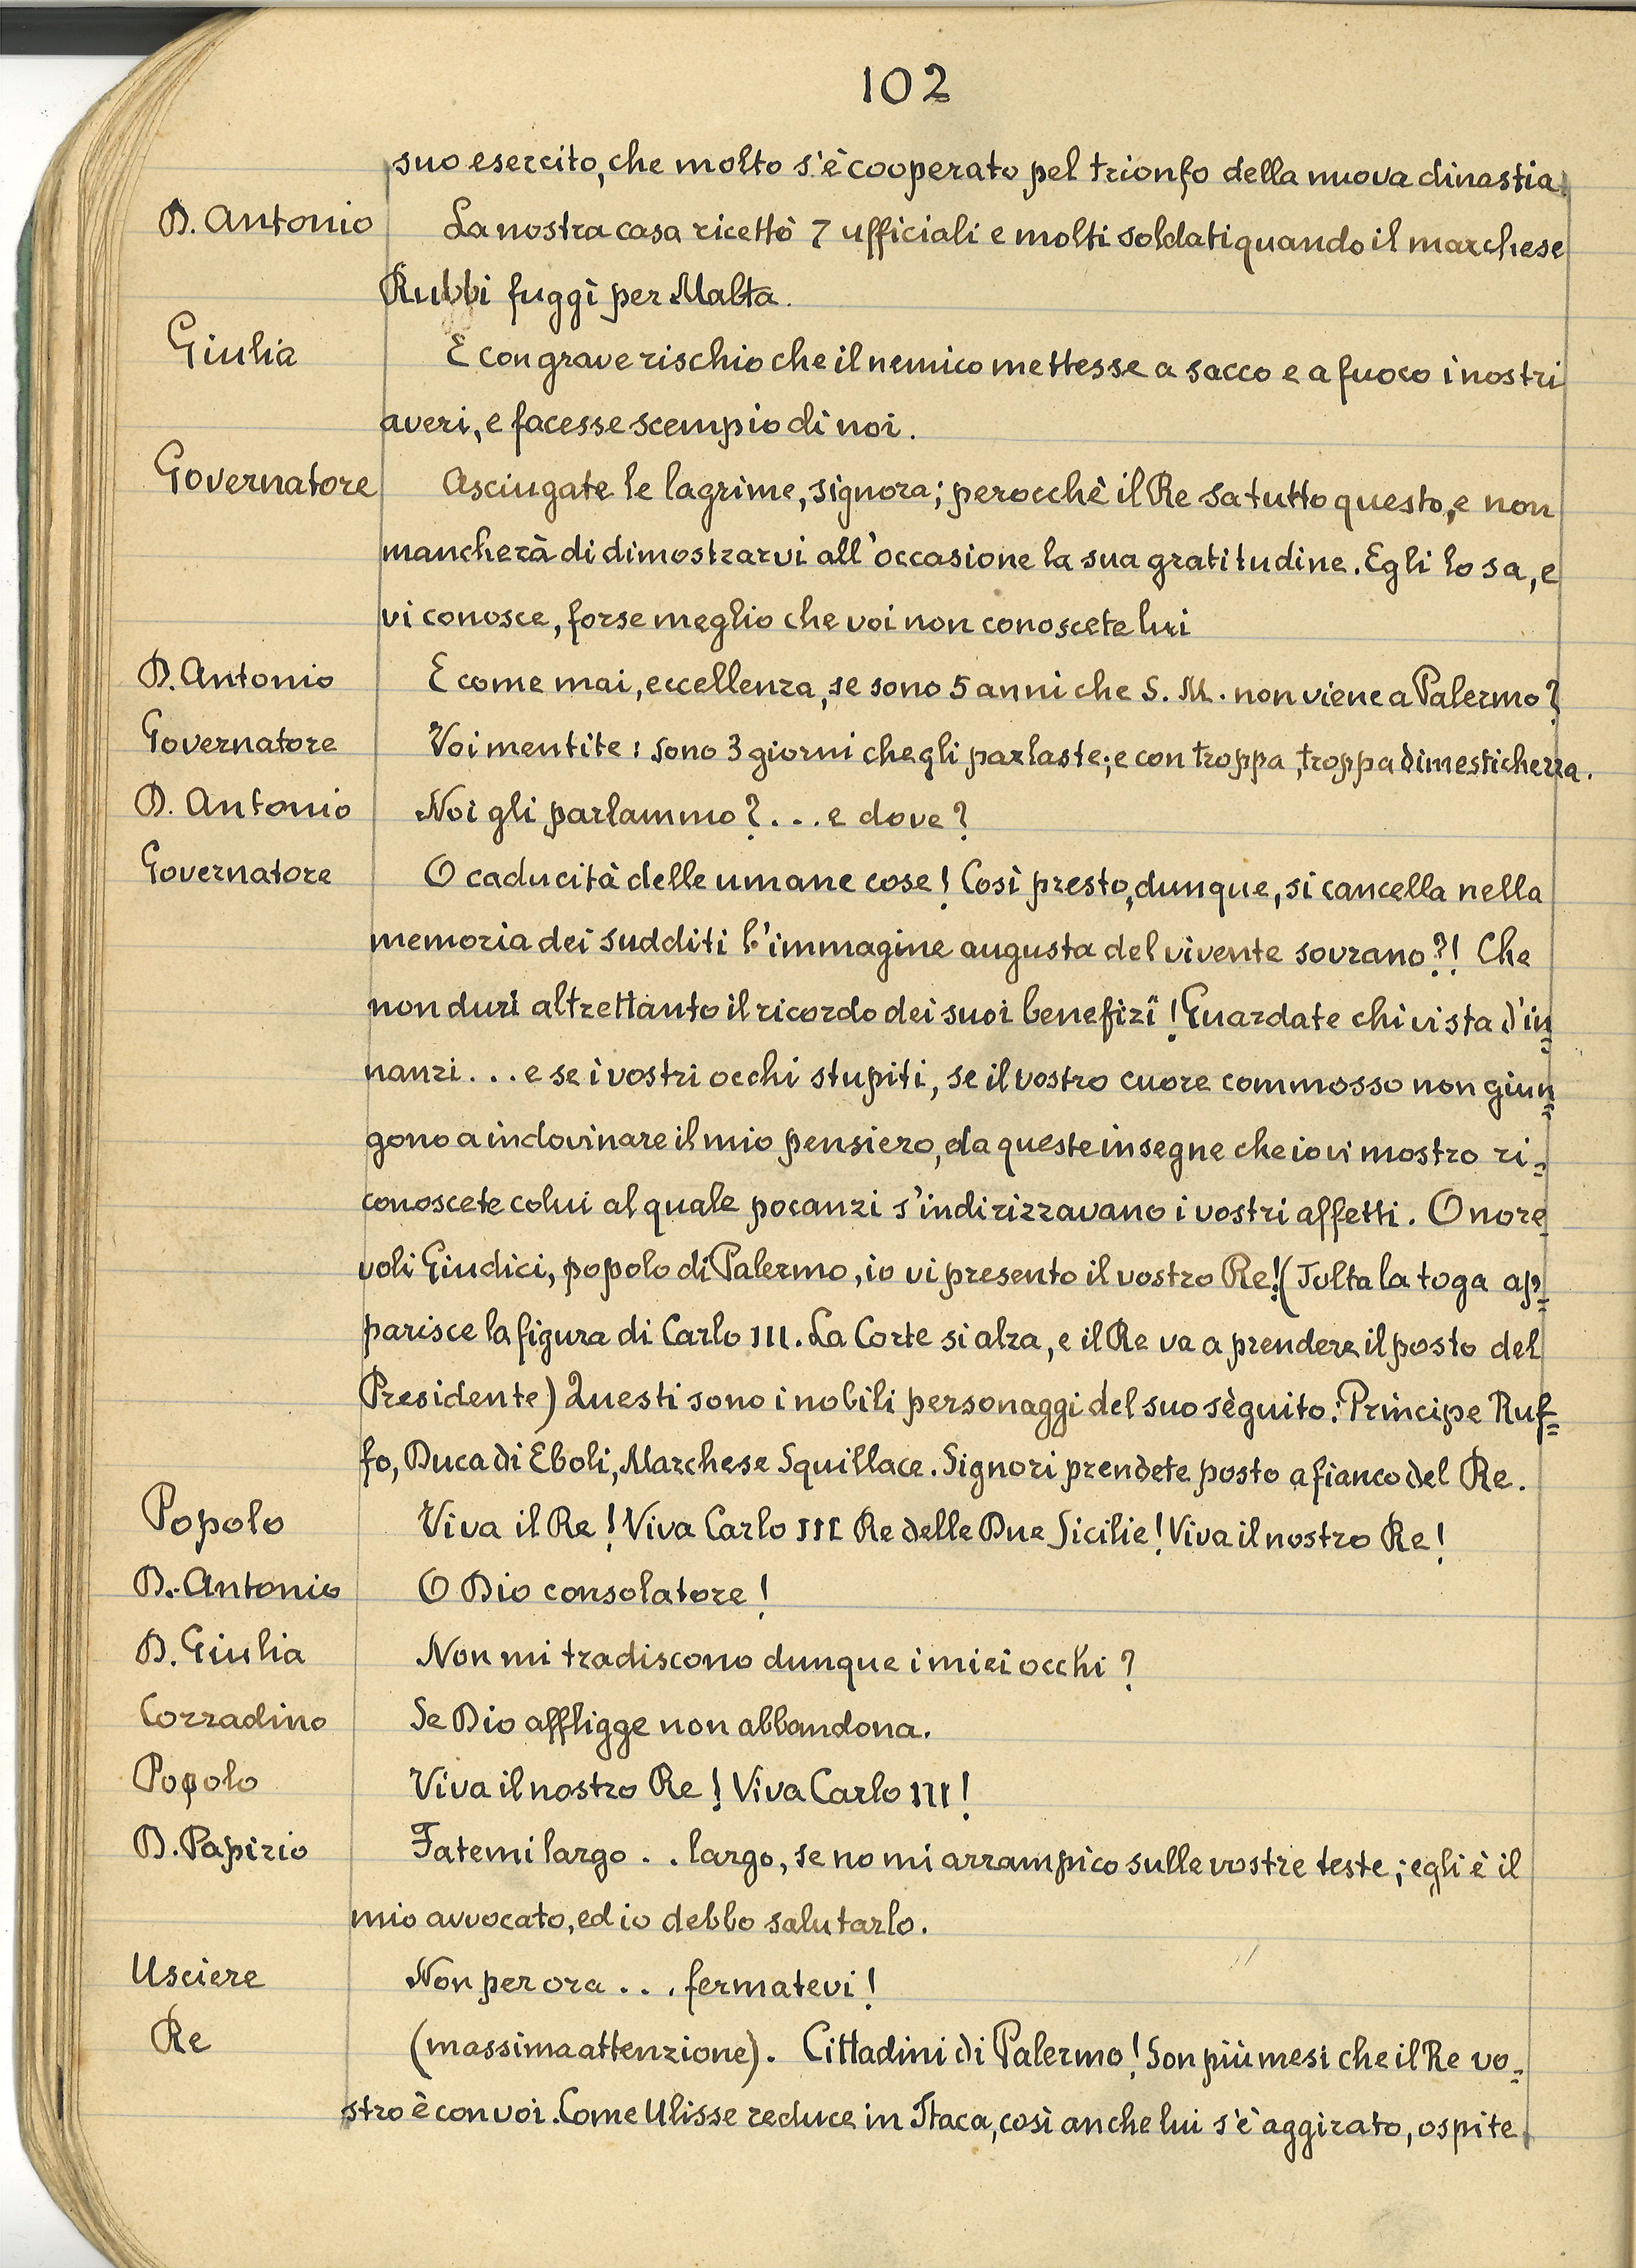 102
suo esercito, che molto s'è cooperato pel trionfo della nuova dinastia.
D. Antonio La nostra casa ricettò 7 ufficiali e molti soldati quando il marchese
Rubbi fuggì per Malta.
Giulia E con grave rischio che il nemico mettesse a sacco e a fuoco i nostri
averi, e facesse scempio di noi.
Governatore Asciugate le lagrime, signora; perocchè il Re sa tutto questo, e non
mancherà di dimostrarvi all'occasione la sua gratitudine. Egli lo sa, e
vi conosce, forse meglio che voi non conoscete lui
D. Antonio E come mai, eccellenza, se sono 5 anni che S. M. non viene a Palermo?
Governatore Voi mentite: sono 3 giorni che gli parlaste; e con troppa, troppa dimestichezza.
D. Antonio Noi gli parlammo?... e dove?
Governatore O caducità delle umane cose! Così presto, dunque, si cancella nella
memoria dei sudditi l'immagine augusta del vivente sovrano?! Che
non duri altrettanto il ricordo dei suoi benefizî! Guardate chi vi sta d'in=
nanzi... e se i vostri occhi stupiti, se il vostro cuore commosso non giun=
gono a indovinare il mio pensiero, da queste insegne che io vi mostro ri=
conoscete colui al quale pocanzi s'indirizzavano i vostri affetti. Onore-
voli Giudici, popolo di Palermo, io vi presento il vostro Re! (Tolta la toga ap=
parisce la figura di Carlo III. La Corte si alza, e il Re va a prendere il posto del
Presidente) Questi sono i nobili personaggi del suo sèguito: Principe Ruf=
fo, Duca di Eboli, Marchese Squillace. Signori prendete posto a fianco del Re.
Popolo Viva il Re! Viva Carlo III Re delle Due Sicilie! Viva il nostro Re!
D. Antonio O Dio consolatore!
D. Giulia Non mi tradiscono dunque i miei occhi?
Corradino Se Dio affligge non abbandona.
Popolo Viva il nostro Re! Viva Carlo III!
D. Papirio Fatemi largo . . largo, se no mi arrampico sulle vostre teste; egli è il
mio avvocato, ed io debbo salutarlo.
Usciere Non per ora... fermatevi!
Re (massima attenzione). Cittadini di Palermo! Son più mesi che il Re vo=
stro è con voi. Come Ulisse reduce in Itaca, così anche lui s'è aggirato, ospite